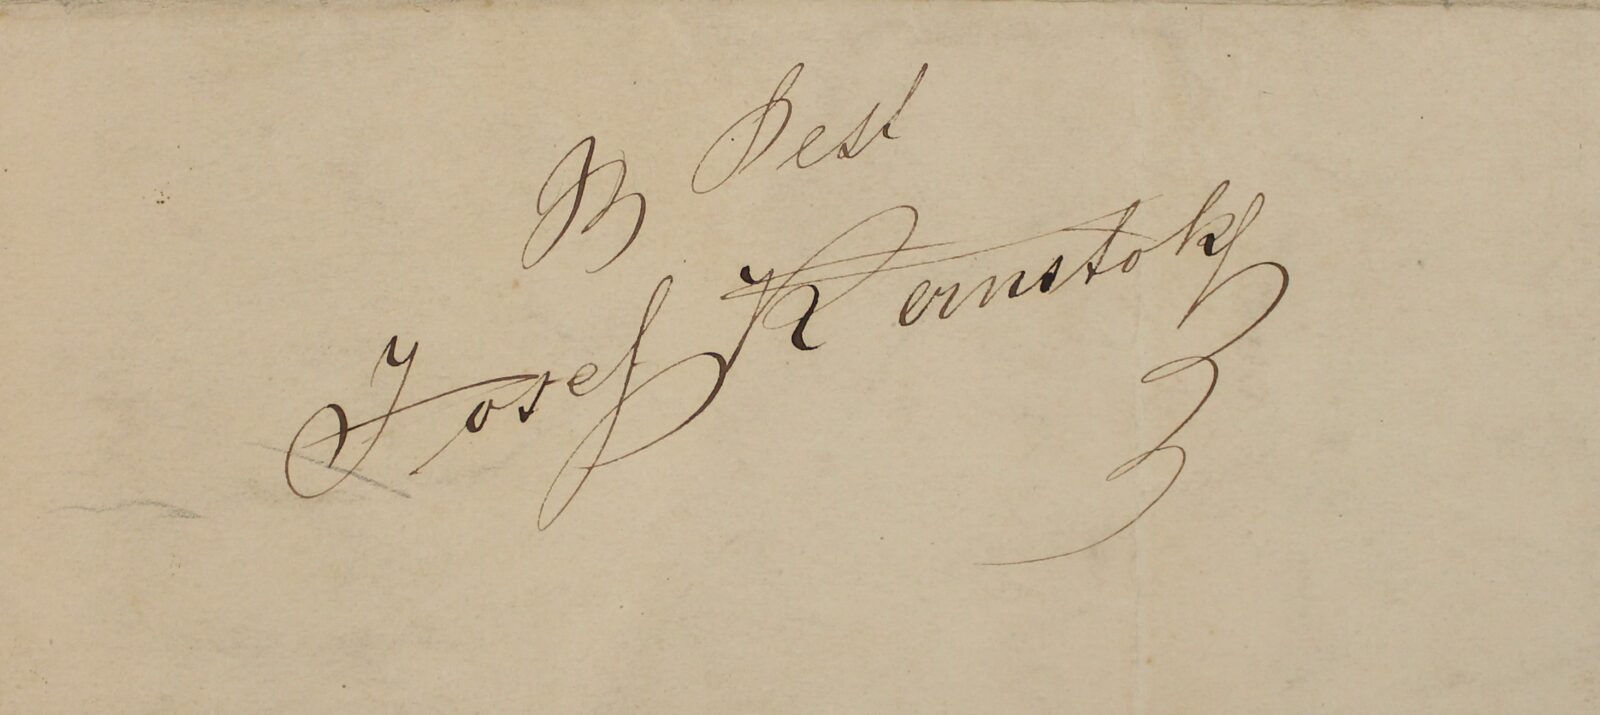 B Pest
Josef Kernstok